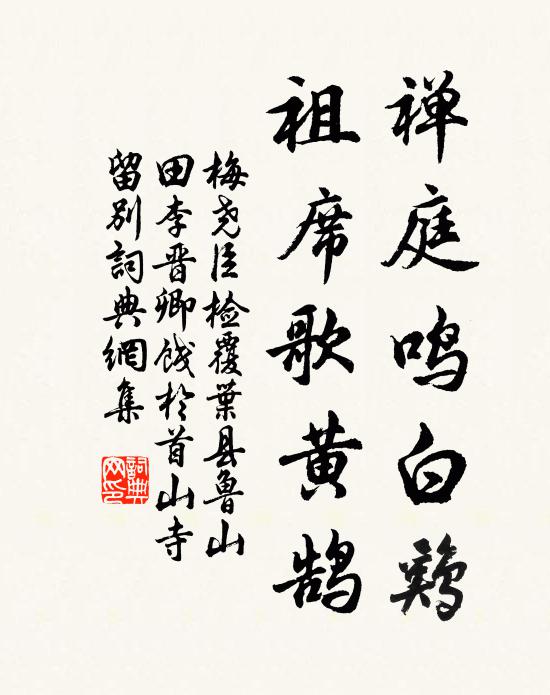 禅庭鸣白鷄
祖席歌黄鹄
梅尧臣检覆葉县鲁山
田李晋卿饯於首山寺
留别詞典網集
詞典网印